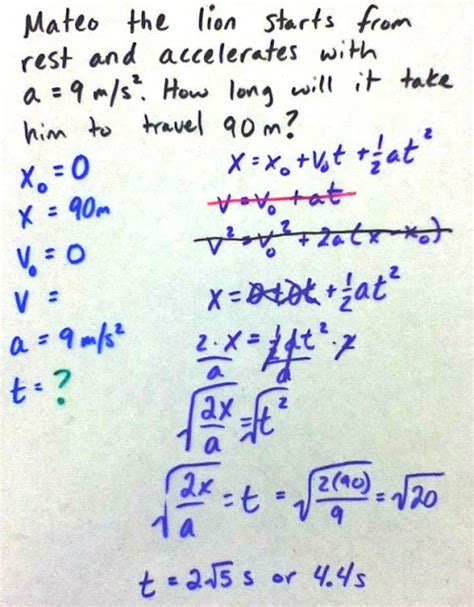 Mateo the lion starts from
rest and accelerates with
a = 9 m/s². How long will it take
him to travel 90 m?
x₀ = 0
x = 90m
v₀ = 0
v =
a = 9 m/s²
t = ?
x = x₀ + v₀t + ½at²
v = v₀ + at
v² = v₀² + 2a(x - x₀)
x = 0 + 0t + ½at²
2·x/a = ½at²·2/a
√(2x/a) = √t²
√(2x/a) = t = √(2(90)/9) = √20
t = 2√5 s or 4.4s